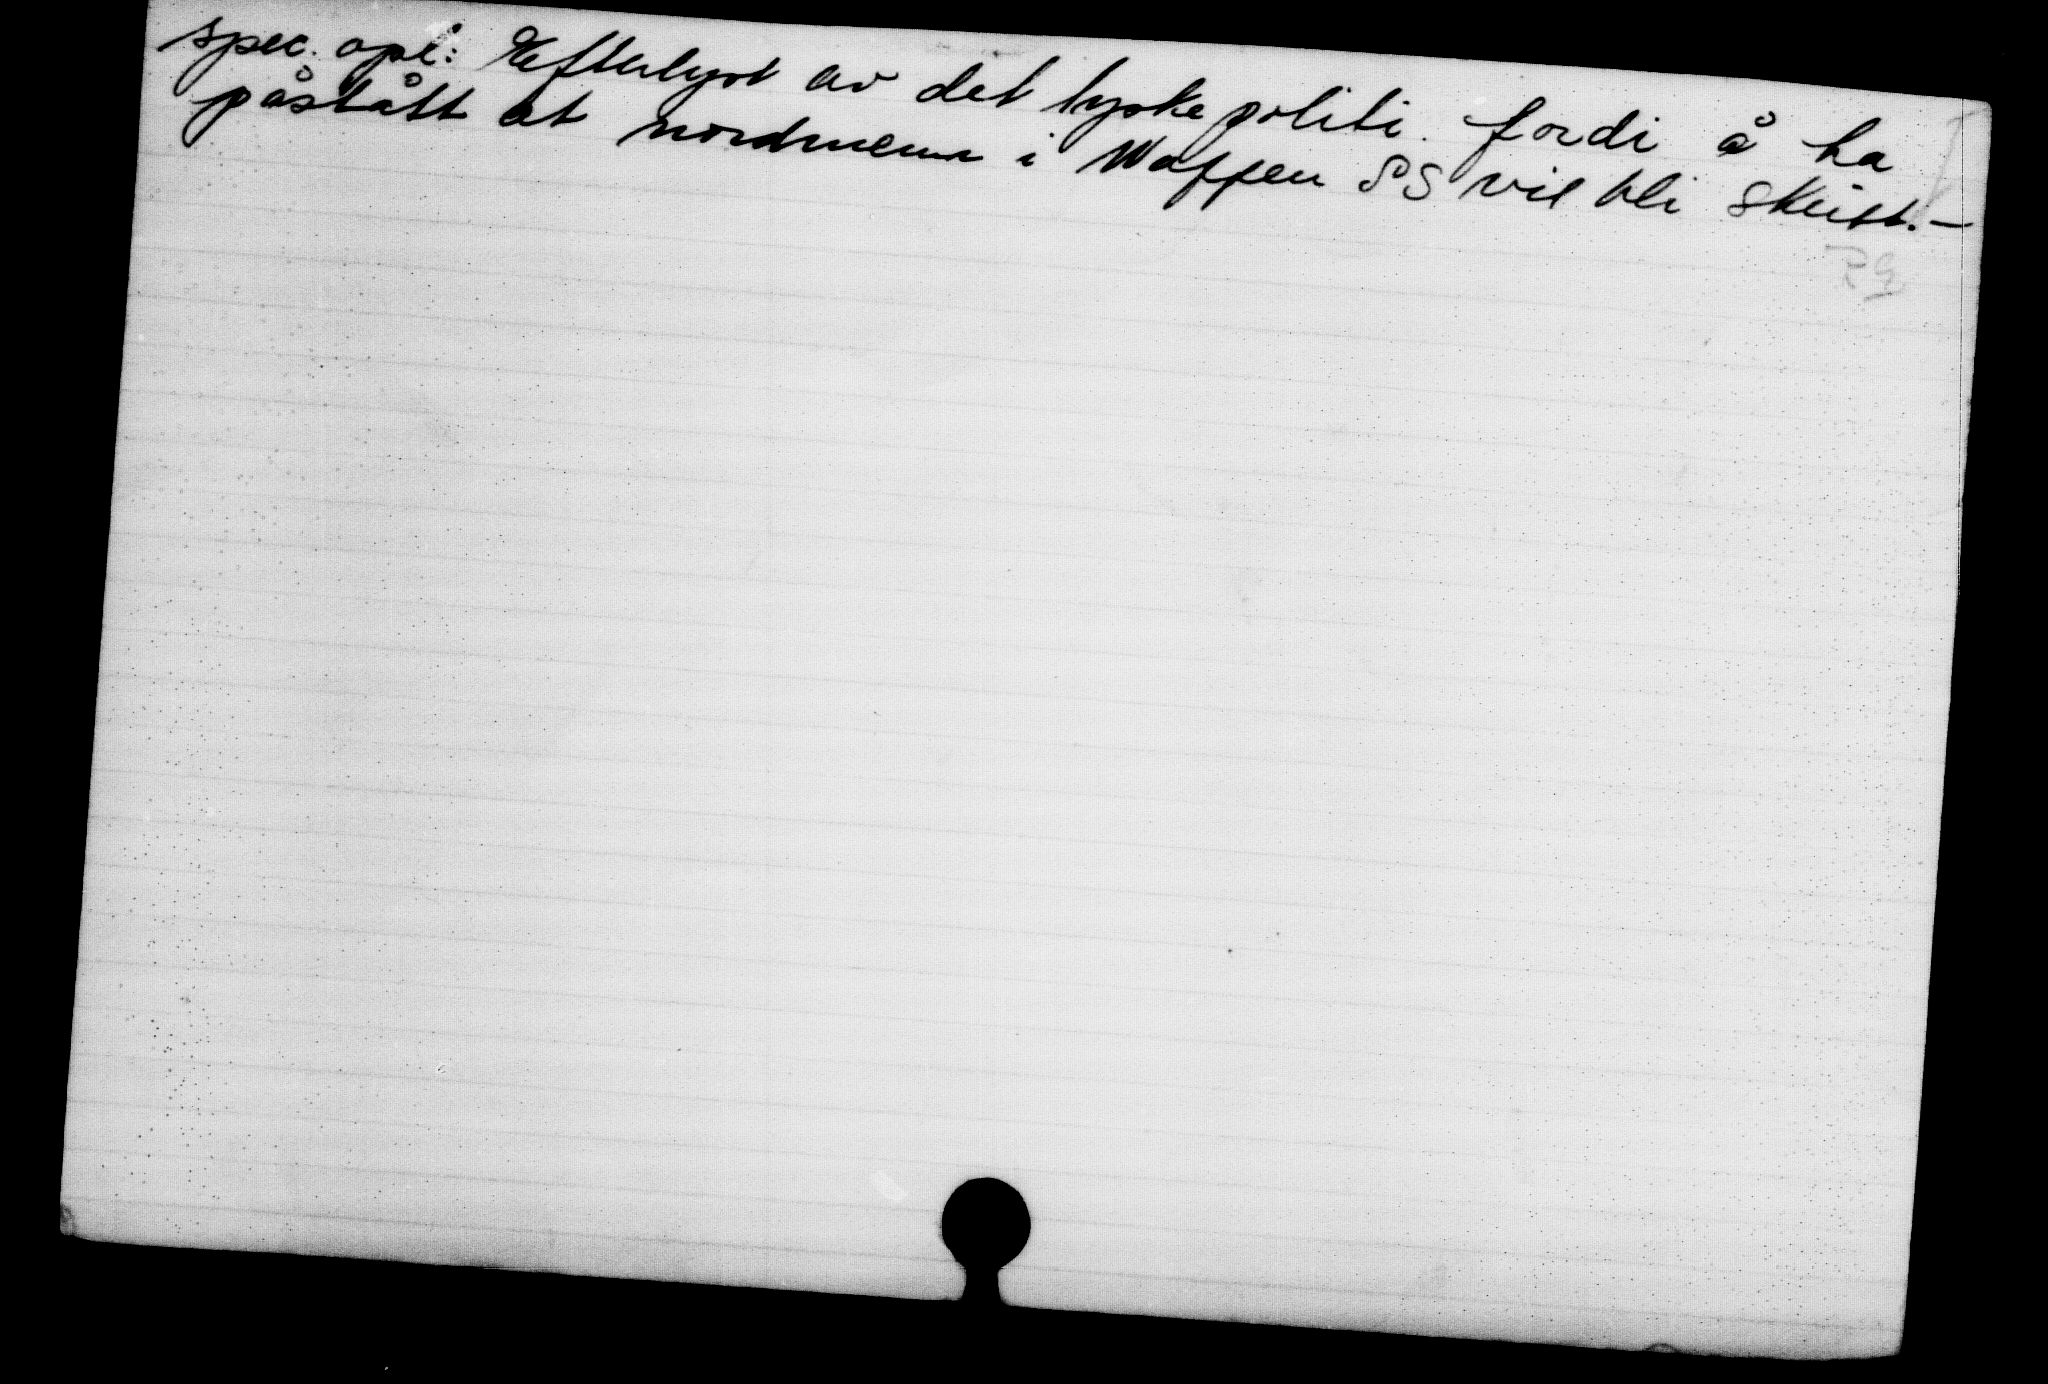 spec. opl: Efterlyst av det tyske politi fordi å ha
påstått at nordmenn i Waffen SS vil bli skutt.-